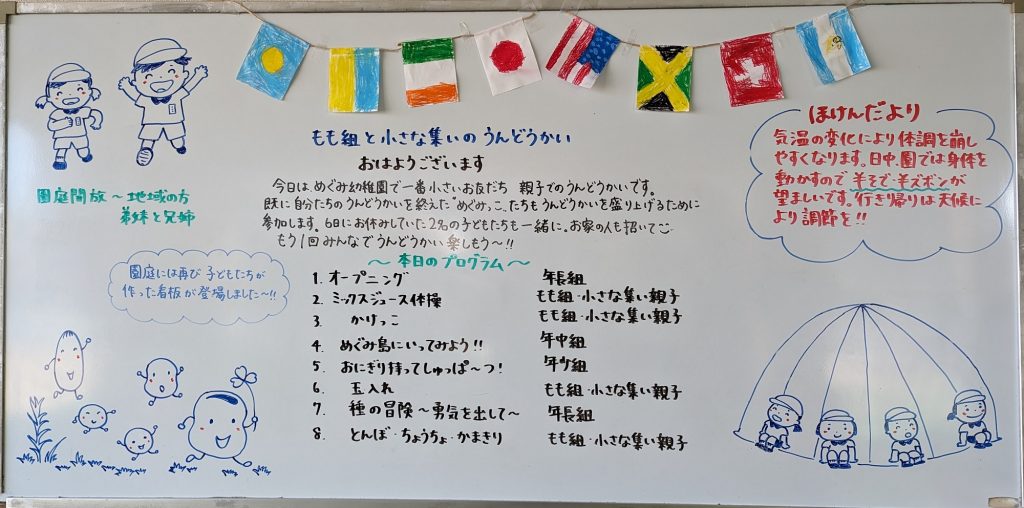 もも組と小さな集いのうんどうかい
おはようございます
今日は、めぐみ幼稚園で一番小さいお友だち 親子でのうんどうかいです。
既に自分たちのうんどうかいを終えた"めぐみっこ"たちもうんどうかいを盛り上げるために
参加します。6日にお休みしていた2名の子どもたちも一緒に。お家の人も招いて
もう1回みんなでうんどうかい楽しもう〜!!
〜本日のプログラム〜
1. オープニング 年長組
2. ミックスジュース体操 もも組・小さな集い親子
3. かけっこ もも組・小さな集い親子
4. めぐみ島にいってみよう!! 年中組
5. おにぎり持ってしゅっぱ〜つ! 年少組
6. 玉入れ もも組・小さな集い親子
7. 種の冒険〜勇気を出して〜 年長組
8. とんぼ・ちょうちょ・かまきり もも組・小さな集い親子
園庭開放〜地域の方
弟妹と兄姉
園庭には再び子どもたちが
作った看板が登場しました〜!!
ほけんだより
気温の変化により体調を崩し
やすくなります。日中、園では身体を
動かすので半そで・半ズボンが
望ましいです。行き帰りは天候に
より調節を!!